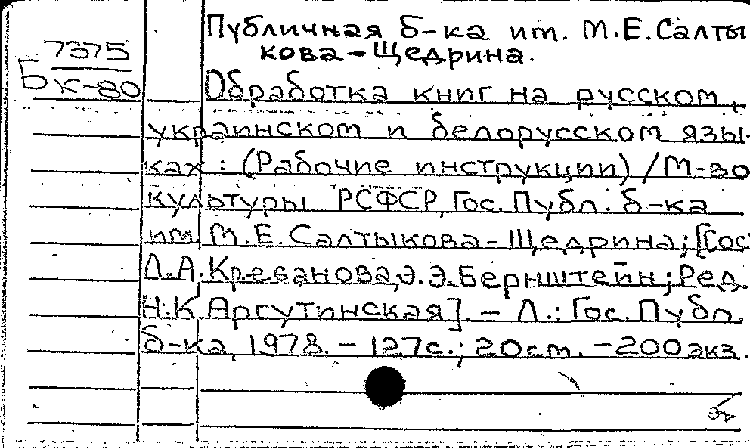 Публичная б-ка им. М.Е.Салты
кова-Щедрина.
7375
Бк-80
Обработка книг на русском,
украинском и белорусском язы-
ках: (Рабочие инструкции) / М-во
культуры РСФСР, Гос. Публ. б-ка
им. М.Е.Салтыкова-Щедрина; [Сос
Л.А. Э.Э.Бернштейн; Ред.
Н.К.Аргутинская]. - Л.: Гос. Публ.
б-ка, 1978. - 127с.; 20см. - 200экз.